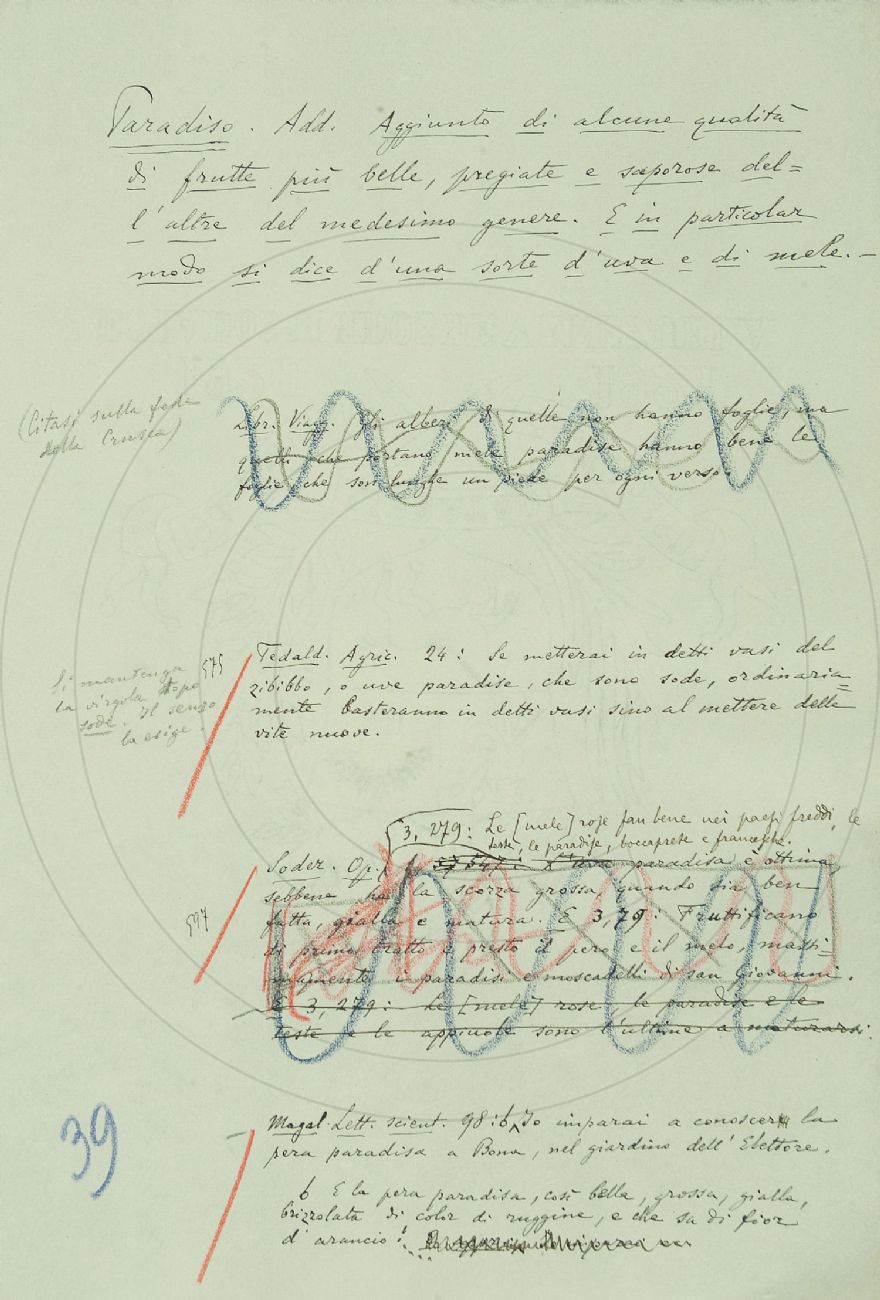 Paradiso. Add. Aggiunto di alcune qualità
di frutte più belle, pregiate e saporose del=
l'altre del medesimo genere. E in particolar
modo si dice d'una sorte d'uva e di mele.—
(Citasi sulla fede
della Crusca)
Libr. Viagg. Gli alberi di quelle non hanno foglie, ma
quelli che portano mele paradise hanno bene le
foglie che son lunghe un piede per ogni verso
Si mantenga
la virgola dopo
sode. Il senso
la esige.
575
Tedald. Agric. 24: Se metterai in detti vasi del
zibibbo, o uve paradise, che sono sode, ordinaria=
mente basteranno in detti vasi sino al mettere delle
vite nuove.
3, 279: Le [mele] rose fan bene nei paesi freddi, le
teste, le paradise, boccaprete e francesche.
Soder. Op. L'uva paradisa è ottima,
sebbene ha la scorza grossa, quando sia ben
fatta, gialla e matura. E 3,79: Fruttificano
di primo tratto e presto il pero e il melo, massi=
mamente i paradisi e moscatelli di san Giovanni.
E 3, 279: Le [mele] rose le paradise e le
teste e le appiuole sono l'ultime a maturarsi.
39
Magal. Lett. scient. 98: b Io imparai a conoscere la
pera paradisa a Bona, nel giardino dell'Elettore.
b E la pera paradisa, così bella, grossa, gialla,
brizzolata di color di ruggine, e che sa di fior
d'arancio!